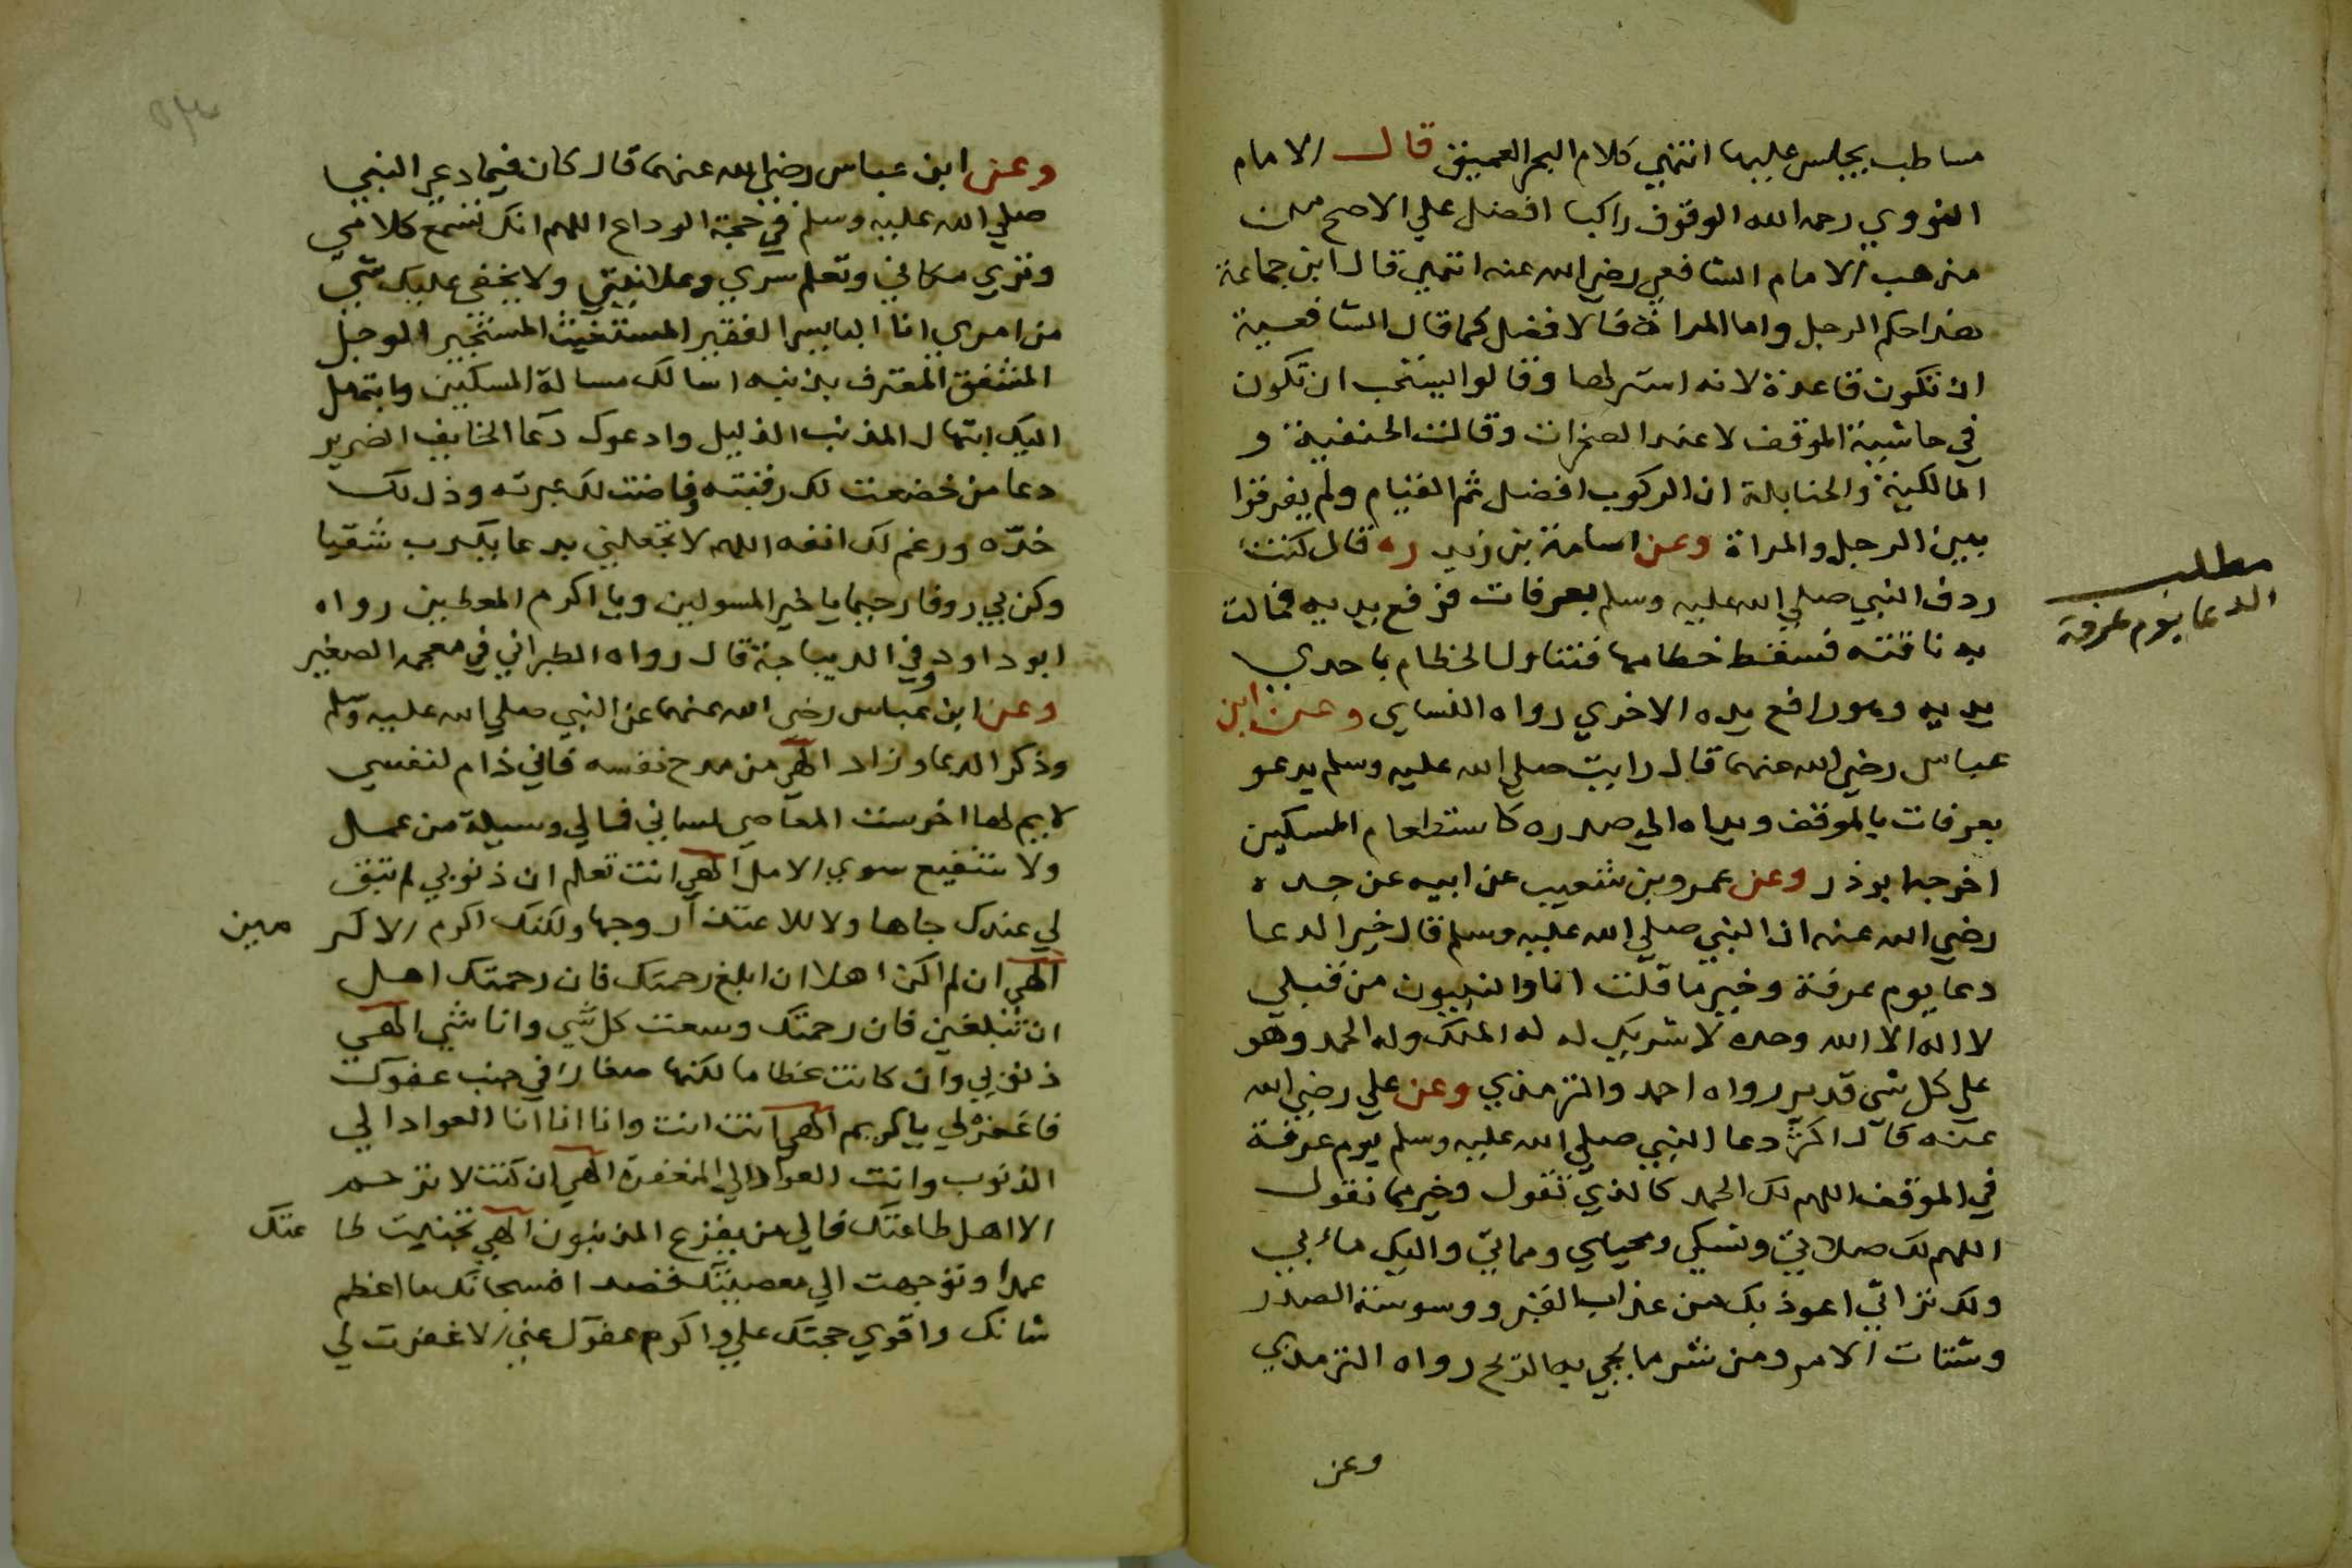 مساطب يجلس عليها انتهي كلام البحر العميق قال الامام
النووي رحمه الله الوقوف راكبا افضل علي الاصح من
مذهب الامام الشافعي رضي الله عنه انتهي قال ابن جماعة
هذا حكم الرجل واما المراة فالافضل كما قال الشافعية
ان تكون قاعدة لانه استر لها وقالوا يستحب ان تكون
في حاشية الموقف لا عند الصخرات وقالت الحنفية و
المالكية والحنابلة ان الركوب افضل ثم القيام ولم يفرقوا
بين الرجل والمراة وعن اسامة بن زيد ره قال كنت
ردف النبي صلي الله عليه وسلم بعرفات فرفع يديه فمالت
به ناقته فسقط خطامها فتناول الخطام باحدي
يديه وهو رافع يده الاخري رواه النساي وعن ابن
عباس رضي الله عنهما قال رايت صلي الله عليه وسلم يدعو
بعرفات بالموقف ويداه الي صدره كاستطعام المسكين
اخرجه ابو ذر وعن عمرو بن شعيب عن ابيه عن جده
رضي الله عنه ان النبي صلي الله عليه وسلم قال خير الدعا
دعا يوم عرفة وخير ما قلت انا والنبيون من قبلي
لا اله الا الله وحده لا شريك له له الملك وله الحمد وهو
علي كل شي قدير رواه احمد والترمذي وعن علي رضي الله
عنه قال اكثر دعا النبي صلي الله عليه وسلم يوم عرفة
في الموقف اللهم لك الحمد كالذي تقول وخير مما نقول
اللهم لك صلاتي ونسكي ومحياي ومماتي واليك مابي
ولك تراثي اعوذ بك من عذاب القبر ووسوسة الصدر
وشتات الامر ومن شر ما يجي به الريح رواه الترمذي
وعن
مطلب
الدعا يوم عرفة
وعن ابن عباس رضي الله عنهما قال كان فيما دعي النبي
صلي الله عليه وسلم في حجة الوداع اللهم انك تسمع كلامي
وتري مكاني وتعلم سري وعلانيتي ولا يخفي عليك شي
من امري انا البايس الفقير المستغيث المستجير الوجل
المشفق المعترف بذنبه اسالك مسالة المسكين وابتهل
اليك ابتهال المذنب الذليل وادعوك دعا الخايف الضرير
دعا من خضعت لك رقبته وفاضت لك عبرته وذل لك
خده ورغم لك انفه اللهم لا تجعلني بدعايك رب شقيا
وكن بي روفا رحيما يا خير المسولين ويا اكرم المعطين رواه
ابو داود وفي الديباجة قال رواه الطبراني في معجمه الصغير
وعن ابن عباس رضي الله عنهما عن النبي صلي الله عليه وسلم
وذكر الدعا وزاد الهي من مدح نفسه فاني ذام لنفسي
لايم لها اخرست المعاصي لساني فمالي وسيلة من عمل
ولا شفيع سوي الامل الهي انت تعلم ان ذنوبي لم تبق
لي عندك جاها ولا للاعتذار وجها ولكنك اكرم الاكر مين
الهي ان لم اكن اهلا ان ابلغ رحمتك فان رحمتك اهل
ان تبلغين فان رحمتك وسعت كل شي وانا شي الهي
ذنوبي وان كانت عظاما لكنها صغار في جنب عفوك
فاغفره لي يا كريم الهي انت انت وانا انا انا العواد الي
الذنوب وانت العواد الي المغفرة الهي ان كنت لا ترحم
الا اهل طاعتك فالي من يفزع المذنبون الهي تجنبت طا عتك
عمدا وتوجهت الي معصيتك قصدا فسبحانك ما اعظم
شانك واقوي حجتك علي واكرم عفوك عني الا غفرت لي